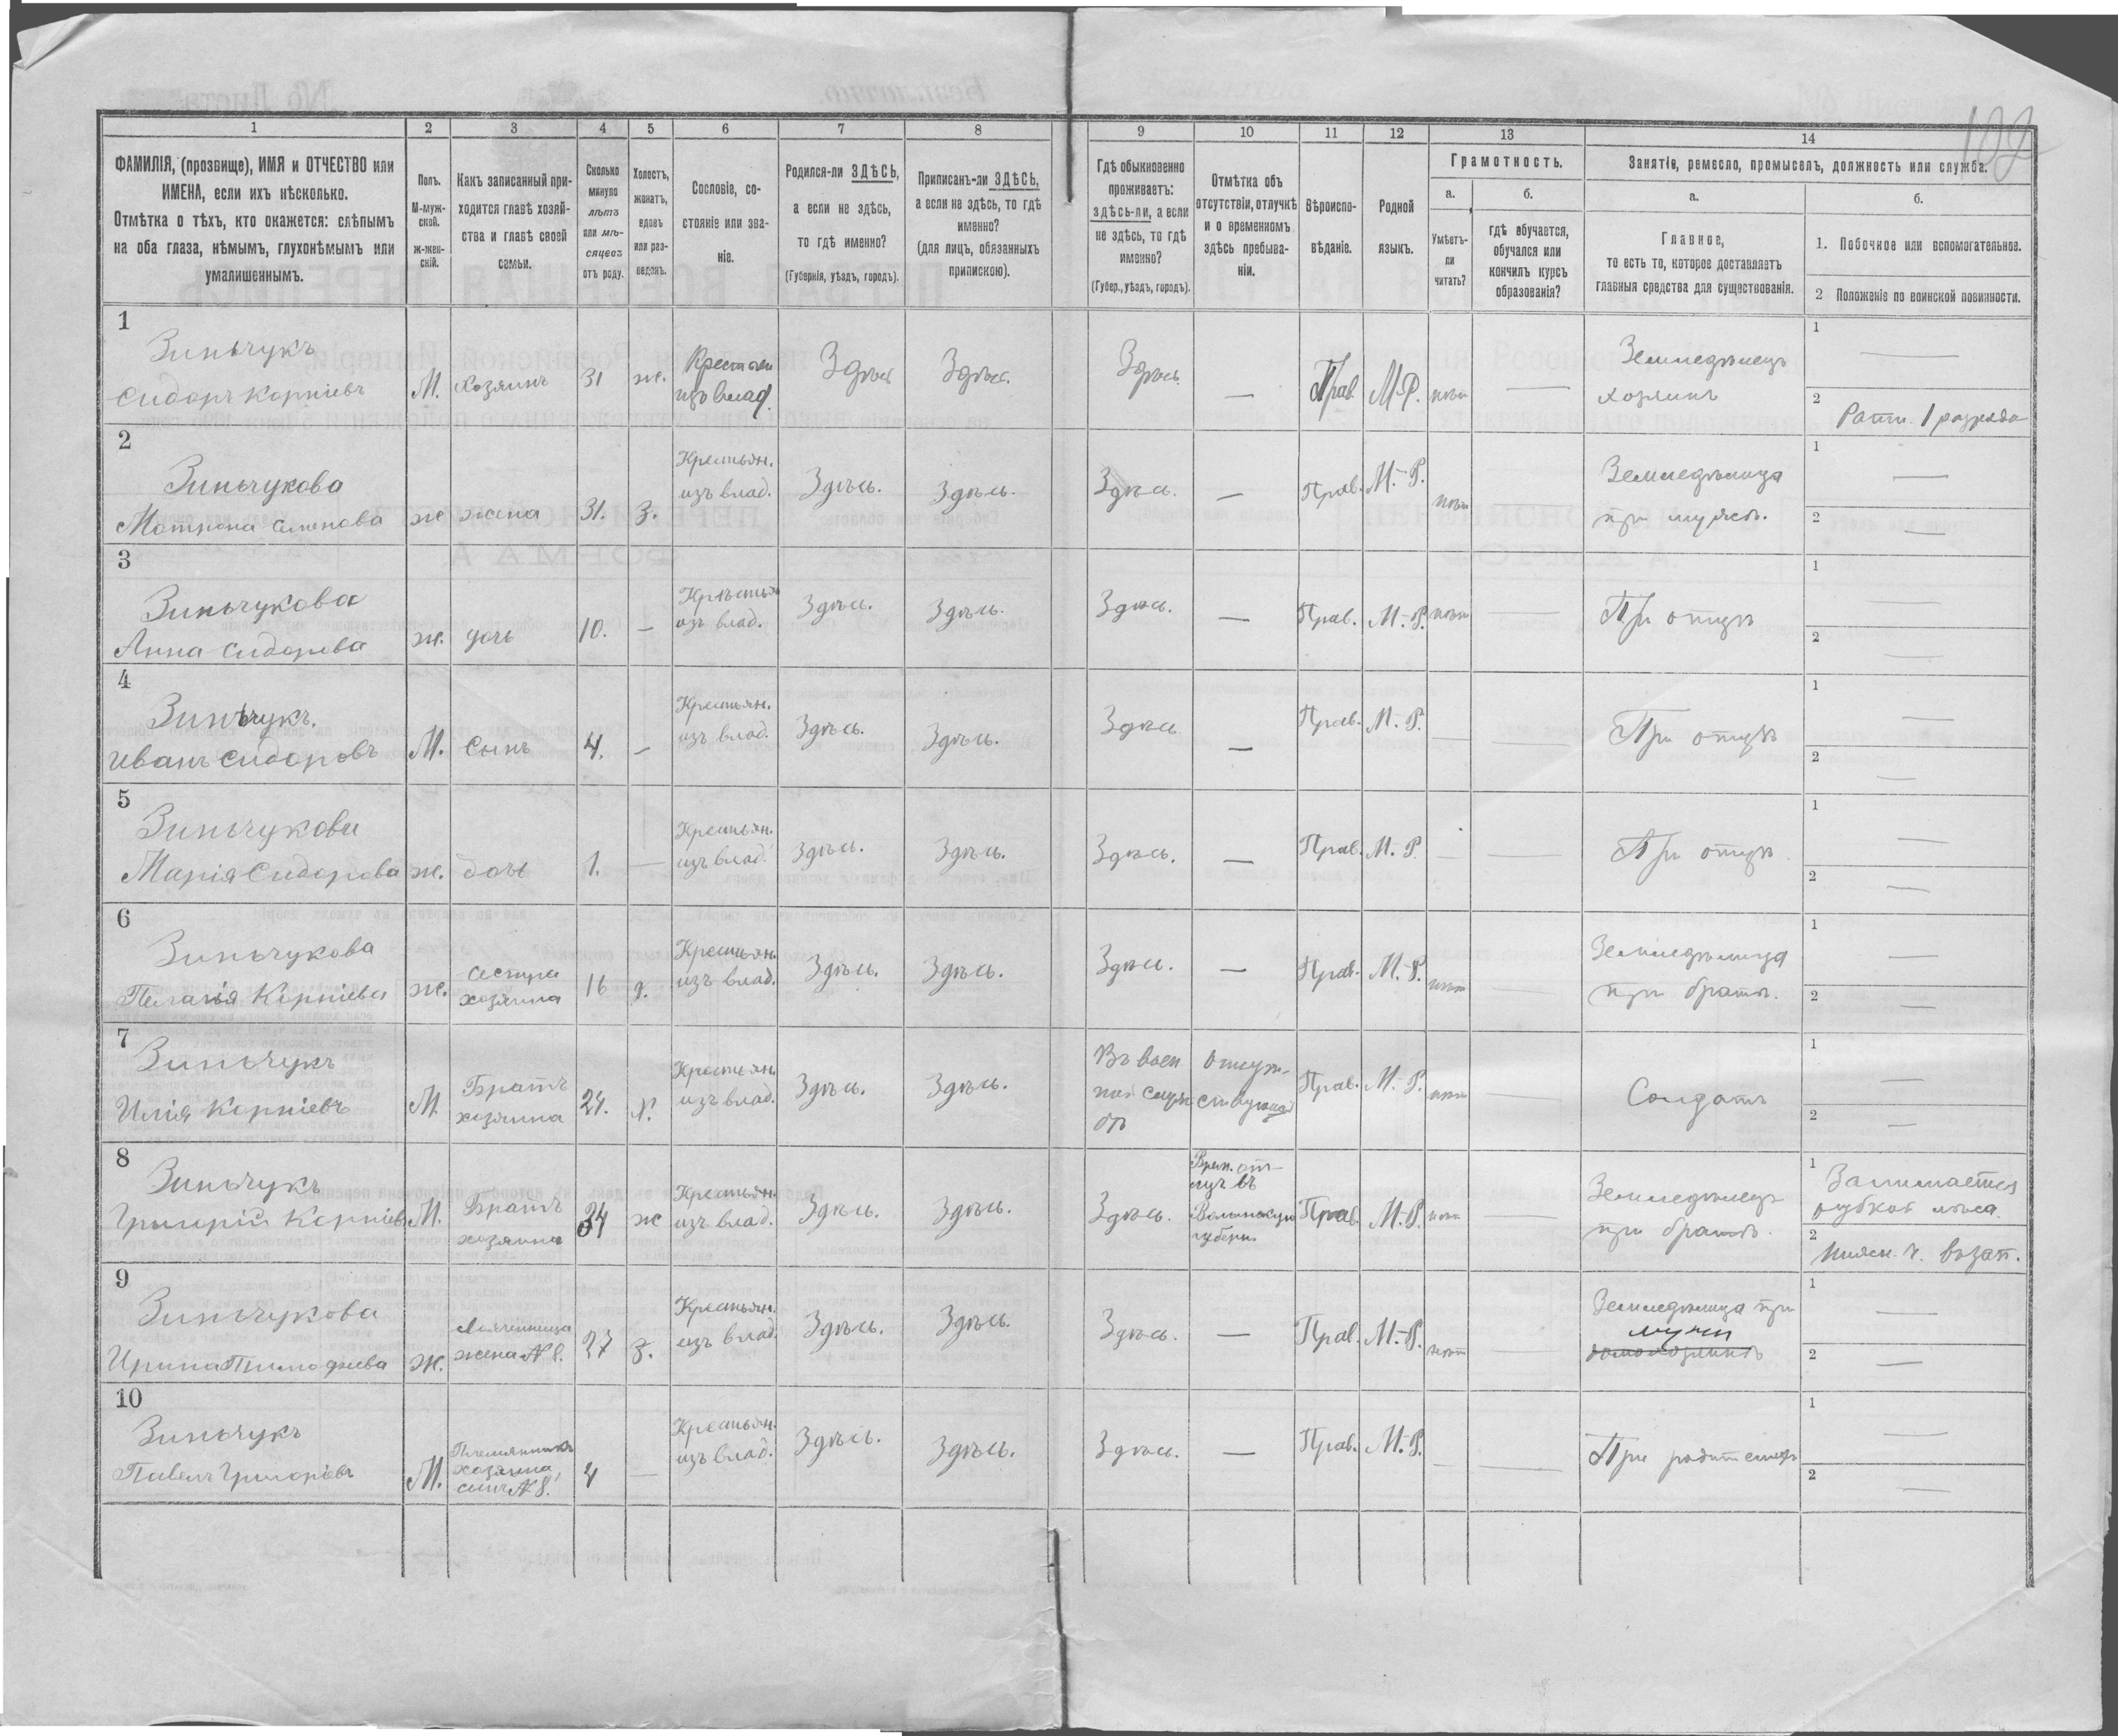 102
1 2 3 4 5 6 7 8 9 10 11 12 13 14
ФАМИЛІЯ, (прозвище), ИМЯ и ОТЧЕСТВО или
ИМЕНА, если ихъ нѣсколько.
Отмѣтка о тѣхъ, кто окажется: слѣпымъ
на оба глаза, нѣмымъ, глухонѣмымъ или
умалишеннымъ.
Полъ.
М-муж-
ской.
ж-жен-
скій.
Какъ записанный при-
ходится главѣ хозяй-
ства и главѣ своей
семьи.
Сколько
минуло
лѣтъ
или мѣ-
сяцевъ
отъ роду.
Холостъ,
женатъ,
вдовъ
или раз-
веденъ.
Сословіе, со-
стояніе или зва-
ніе.
Родился-ли ЗДѢСЬ,
а если не здѣсь,
то гдѣ именно?
(Губернія, уѣздъ, городъ).
Приписанъ-ли ЗДѢСЬ,
а если не здѣсь, то гдѣ
именно?
(для лицъ, обязанныхъ
припискою).
Гдѣ обыкновенно
проживаетъ:
здѣсь-ли, а если
не здѣсь, то гдѣ
именно?
(Губер., уѣздъ, городъ).
Отмѣтка объ
отсутствіи, отлучкѣ
и о временномъ
здѣсь пребыва-
ніи.
Вѣроиспо-
вѣданіе.
Родной
языкъ.
Грамотность.
а.
Умѣетъ-
ли
читать?
б.
гдѣ обучается,
обучался или
кончилъ курсъ
образованія?
Занятіе, ремесло, промыселъ, должность или служба.
а.
Главное,
то есть то, которое доставляетъ
главныя средства для существованія.
б.
1. Побочное или вспомогательное.
2 Положеніе по воинской повинности.
1
Зиньчукъ
Сидоръ Корніевъ
М. Хозяинъ 31 ж.
Крестьян
изъ влад.
Здѣсь Здѣсь. Здѣсь. — Прав. М.Р. нѣтъ —
Земледѣлецъ
хозяинъ
1 —
2 Ратн. 1 разряда
2
Зиньчукова
Матрона Семенова
ж жена 31. З.
Крестьян.
изъ влад.
Здѣсь. Здѣсь. Здѣсь. — Прав. М.-Р. нѣтъ
Земледѣлица
при мужѣ.
1 —
2 —
3
Зиньчукова
Анна Сидорова
ж. дочь 10. —
Крестьян
изъ влад.
Здѣсь. Здѣсь. Здѣсь. — Прав. М.-Р. нѣтъ —
При отцѣ
1 —
2 —
4
Зиньчукъ.
Иванъ Сидоровъ
М. Сынъ 4. —
Крестьян.
изъ влад.
Здѣсь. Здѣсь. Здѣсь — Прав. М.-Р. — —
При отцѣ
1 —
2 —
5
Зиньчукова
Марія Сидорова
ж. дочь 1. —
Крестьян.
изъ влад.
Здѣсь. Здѣсь. Здѣсь. — Прав. М.Р. — —
При отцѣ.
1 —
2 —
6
Зиньчукова
Пелагія Корніева
ж.
сестра
хозяина
16 д.
Крестьян.
изъ влад.
Здѣсь. Здѣсь. Здѣсь. — Прав. М.-Р. нѣтъ —
Земледѣлица
при братѣ.
1 —
2 —
7
Зиньчукъ
Илія Корніевъ
М.
Братъ
хозяина
24. х.
Крестьян.
изъ влад.
Здѣсь. Здѣсь.
Въ воен
ной служ
бѣ
Отсут-
ствующій
Прав. М.-Р. нѣтъ —
Солдатъ
1 —
2 —
8
Зиньчукъ
Григорій Корніев
М.
Братъ
хозяина
34 ж
Крестьян.
изъ влад.
Здѣсь. Здѣсь. Здѣсь.
Врем. от-
луч. въ
Волынскую
губерн.
Прав. М.-Р. нѣтъ —
Земледѣлецъ
при братѣ.
1 Занимается
рубкой лѣса.
2 Нижн. ч. въ зап.
9
Зиньчукова
Ирина Тимофѣева
ж.
жена № 8.
27 З.
Крестьян.
изъ влад.
Здѣсь. Здѣсь. Здѣсь. — Прав. М.-Р. нѣтъ —
Земледѣлица при
мужѣ
домохозяинѣ
1 —
2 —
10
Зиньчукъ
Павелъ Григоріевъ
М.
Племянникъ
хозяина,
сынъ № 8.
4 —
Крестьян.
изъ влад.
Здѣсь. Здѣсь. Здѣсь. — Прав. М.Р. — —
При родителяхъ
1 —
2 —